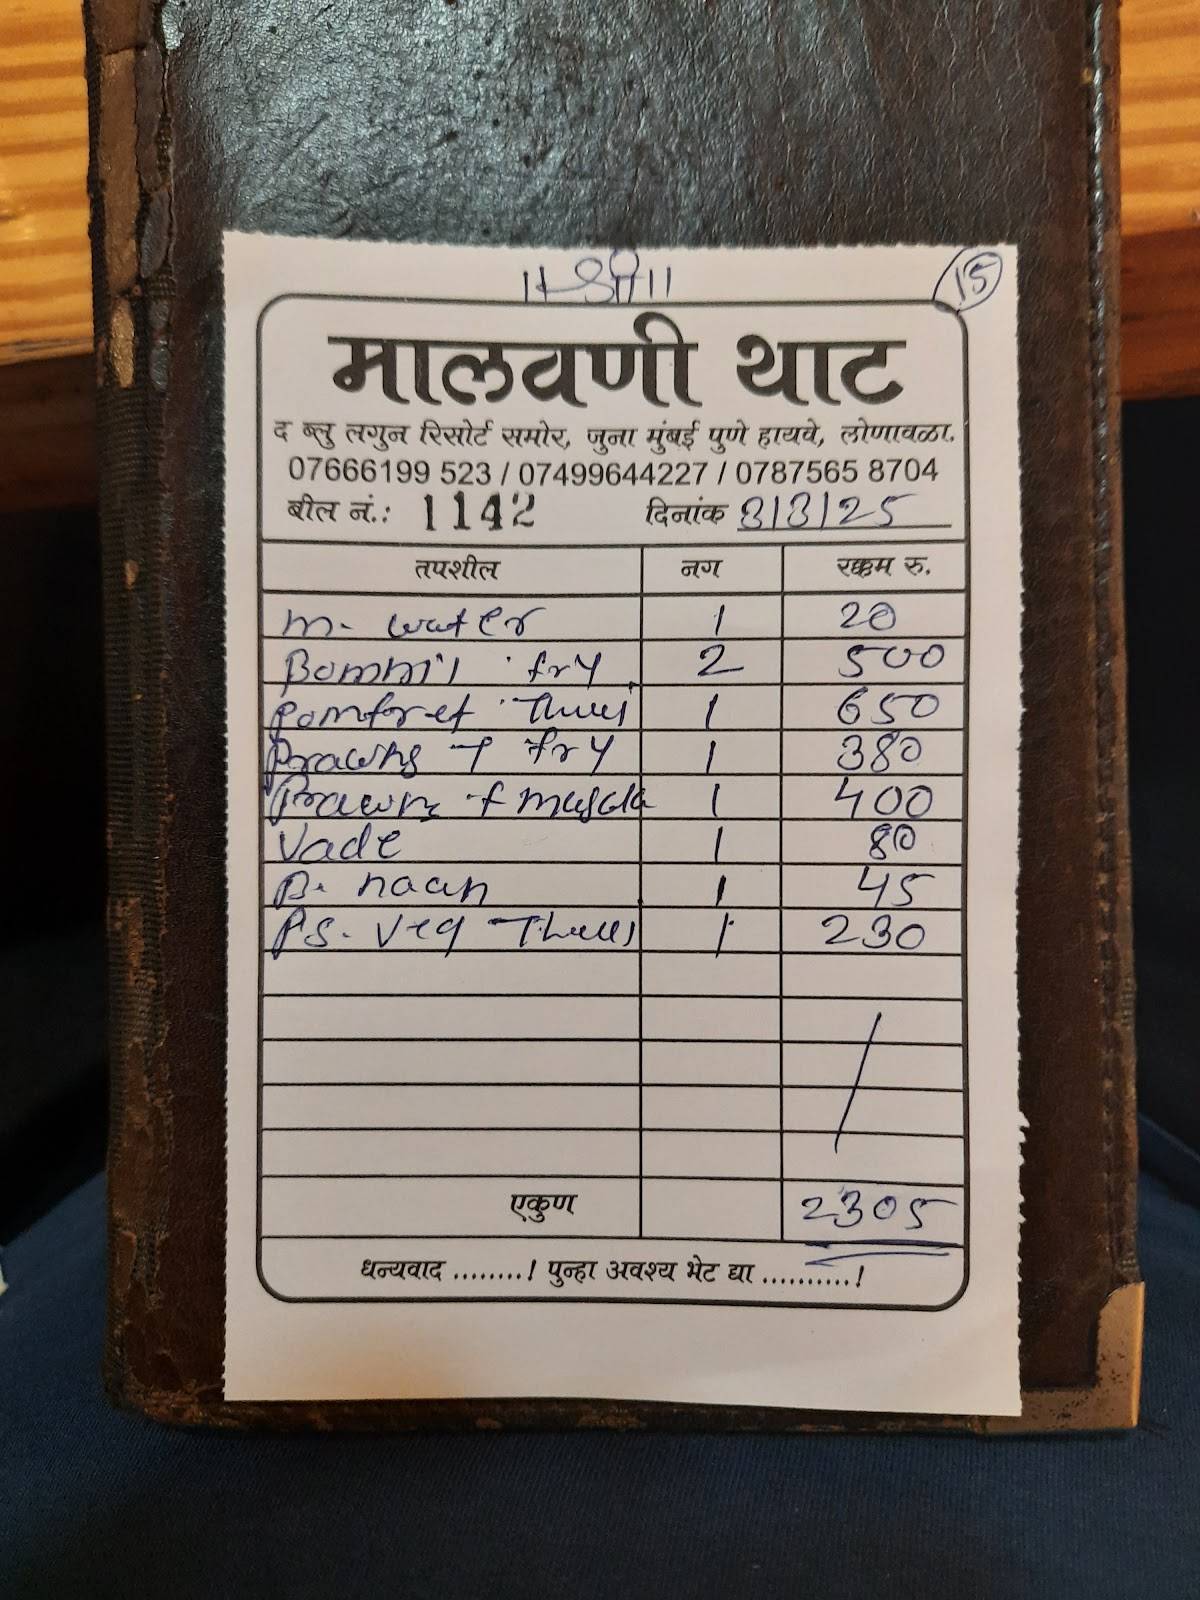 ॥ श्री ॥
15
मालवणी थाट
द ब्लु लगुन रिसोर्ट समोर, जुना मुंबई पुणे हायवे, लोणावळा.
07666199 523 / 07499644227 / 0787565 8704
बील नं.: 1142 दिनांक 3/3/25
तपशील नग रक्कम रु.
M. water 1 20
Bommil fry 2 500
Pomfret Thali 1 650
Prawns T fry 1 380
Prawns T masala 1 400
Vade 1 80
B. naan 1 45
PS. Veg Thali 1 230
एकुण 2305
धन्यवाद ........! पुन्हा अवश्य भेट द्या ..........!